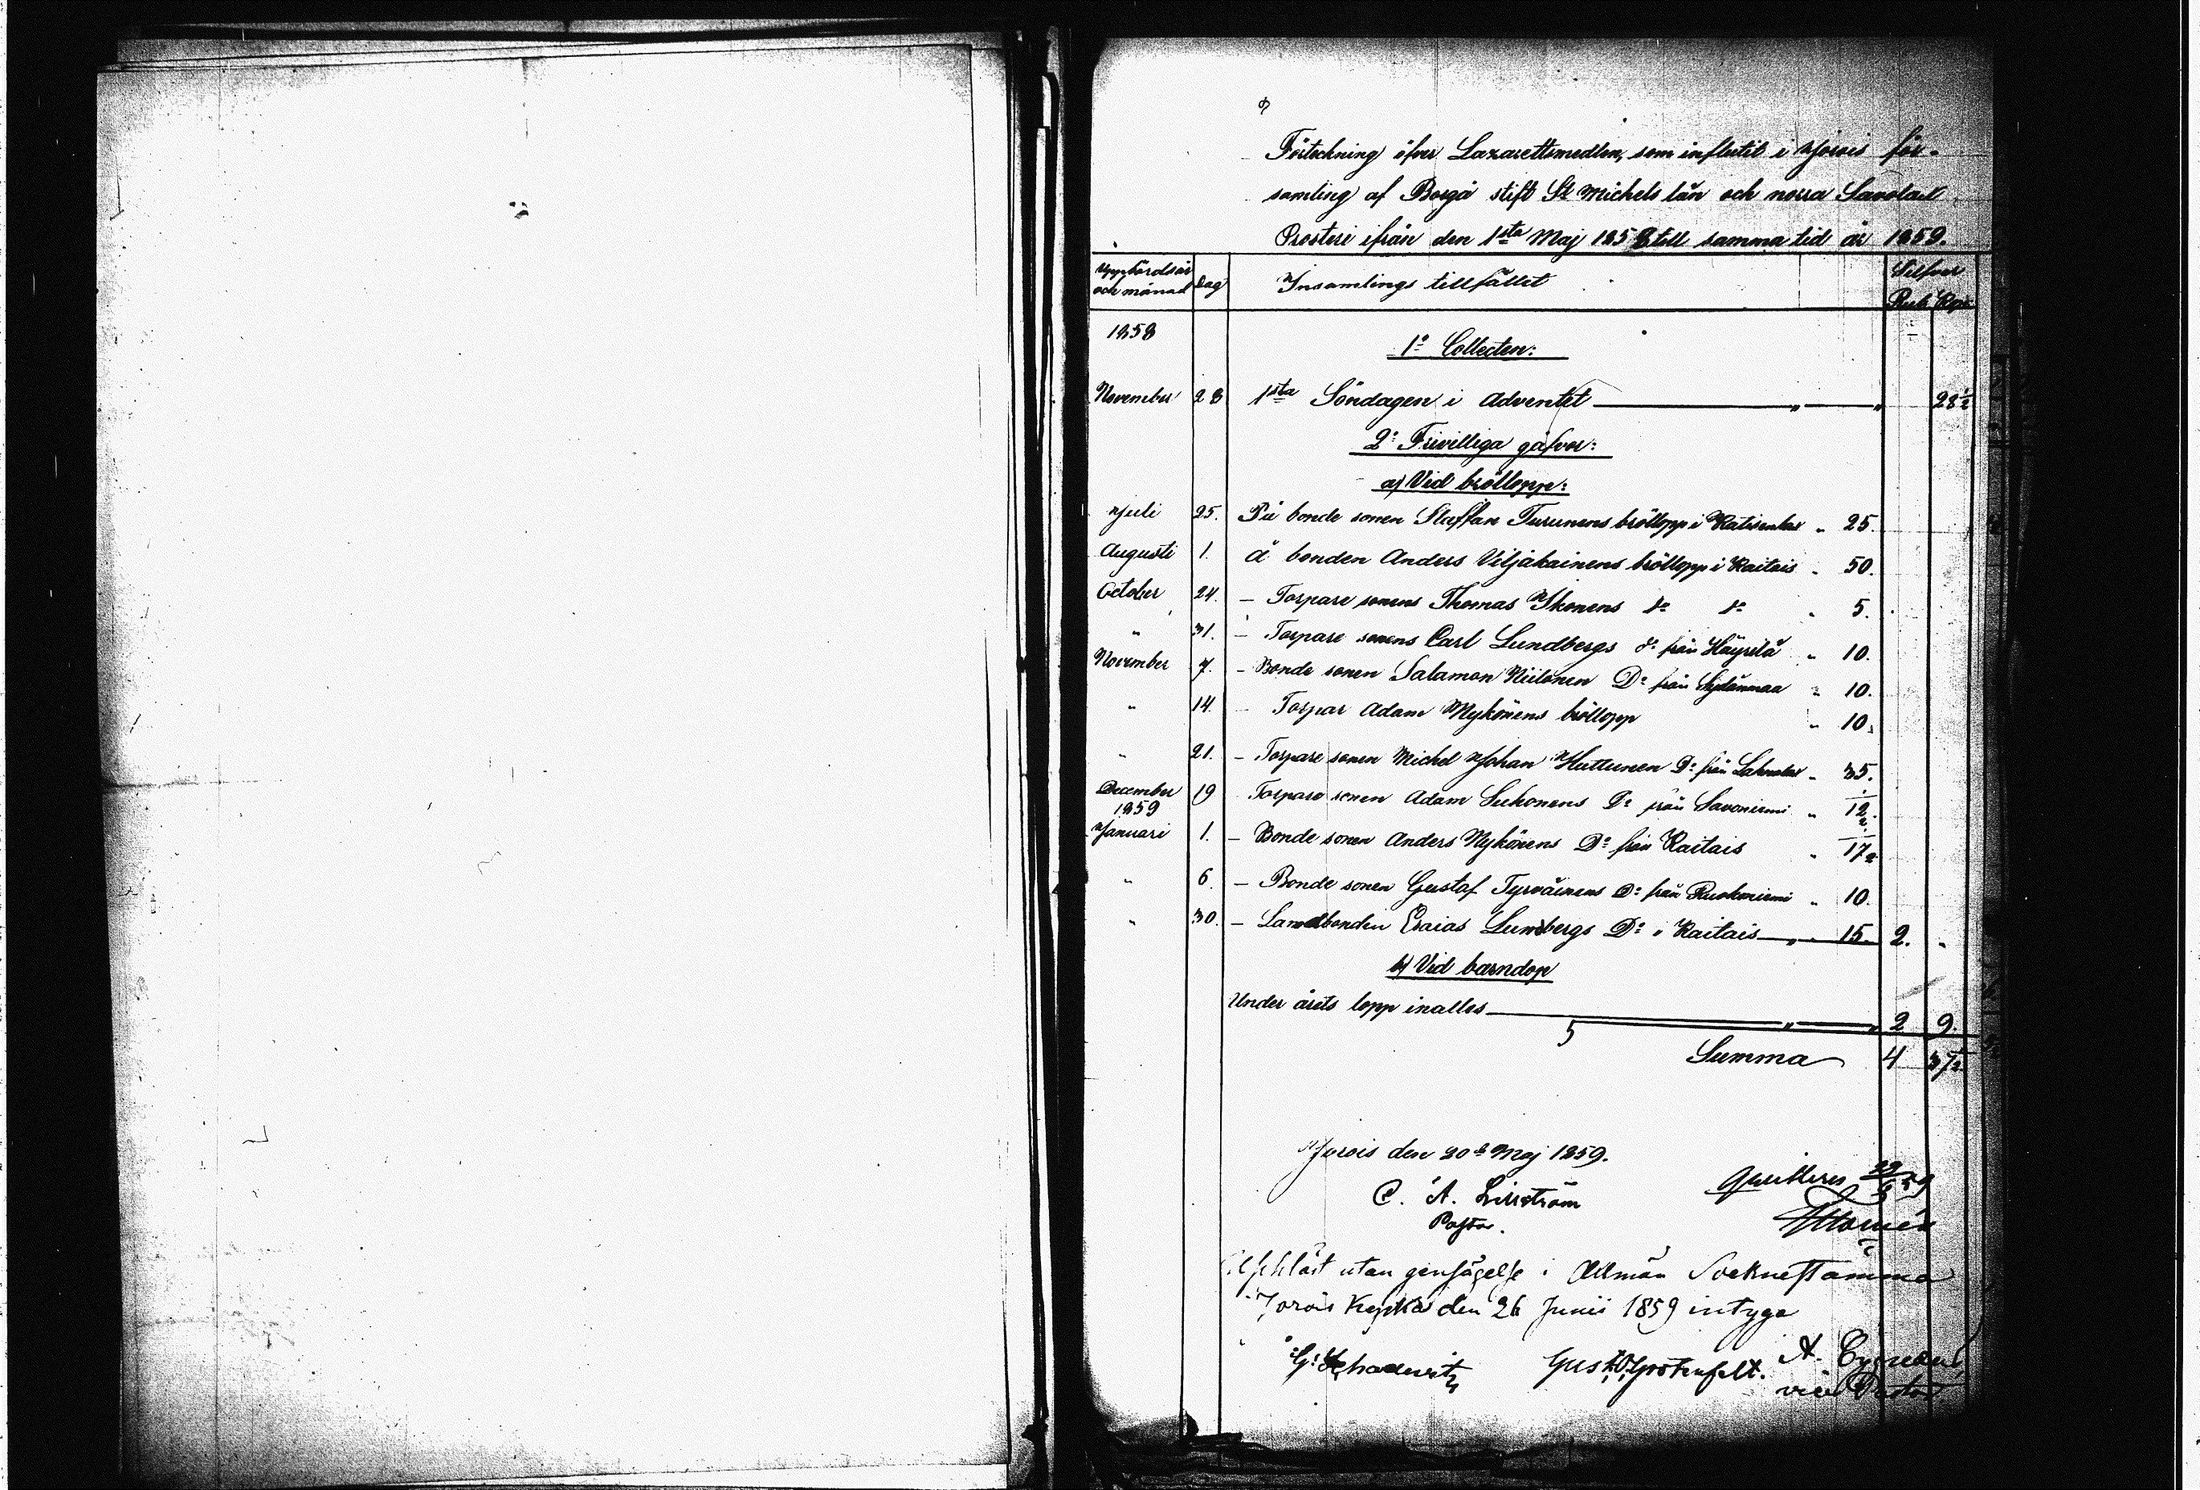 Förteckning öfver Lazarettsmedlen, som influtit i Jorois för-
samling af Borgå stift St Michels län och norra Savolax
Prosteri ifrån den 1sta Maj 1858 till samma tid år 1859.
Uppbördsår och månad Dag Insamlings tillfället Silfver Rub. Kop.
1858
1o Collecten:
November 28 1sta Söndagen i Adventet „ „ 28 1/2
2o Frivilliga gåfvor:
a) Vid bröllopp:
Juli 25. På bonde sonen Staffan Turunens bröllopp i „ 25.
Augusti 1. å bonden Anders Viljakainens bröllopp i Kaitais „ 50.
October 24. – Torpare sonens Thomas Ikonens do do „ 5.
„ 31. – Torpare sonens Carl Lundbergs do från Häyrilä „ 10.
November 7. – Bonde sonen Salamon Niilonen Do från Sydänmaa „ 10.
„ 14. – Torpar Adam Mykönens bröllopp „ 10.
„ 21. – Torpare sonen Michel Johan Huttunen Do från „ 35.
December 19 Torpare sonen Adam Lukonens Do från Savoniemi „ 12 1/2.
1859
Januari 1. – Bonde sonen Anders Mykönens Do från Kaitais „ 17 1/2
„ 6. – Bonde sonen Gustaf Tyrväinens Do från Ruokoniemi „ 10.
„ 30. – Landbonden Esaias Lundbergs Do i Kaitais „ 15. 2. „
b) Vid barndop
Under årets lopp inalles „ „ 2 9.
Summa 4 37 1/2
Jorois den 20de Maj 1859.
C. A. Lisström
Pastor.
Quitteras
Uppläst utan gensägelse i Allmän Socknestämma
i Jorois Kyrka den 26 Junii 1859 intyga
G: Schadewitz Gust. O. Grotenfelt. A. Cygnæus
vice Pastor